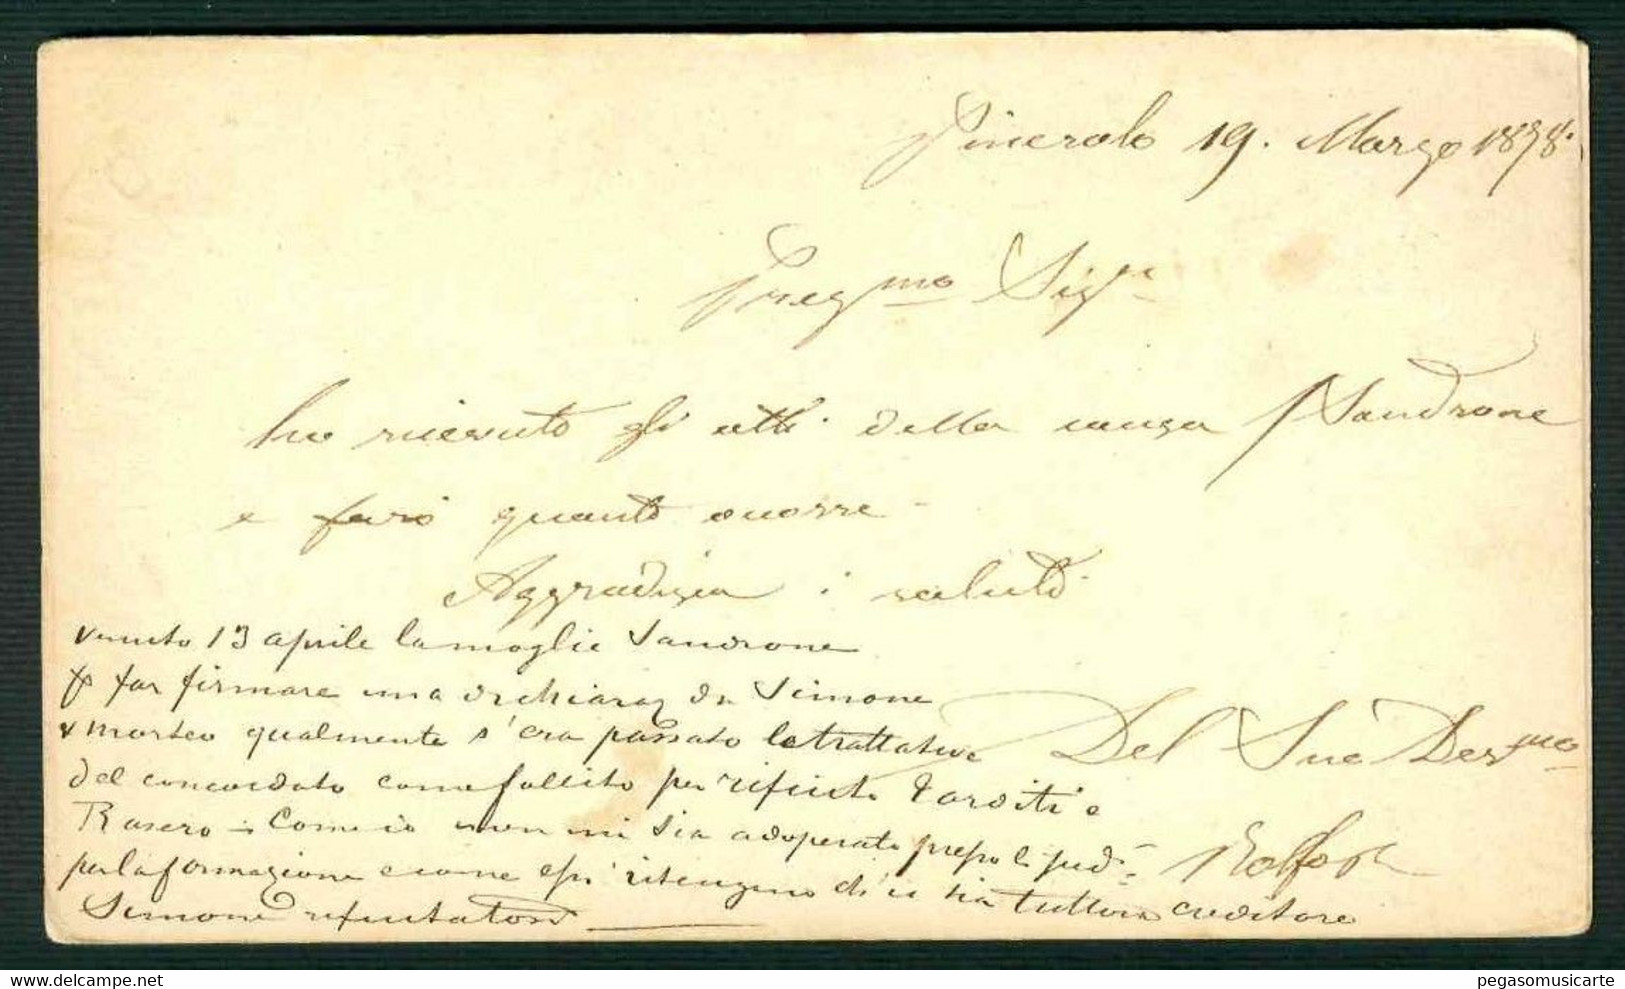 Pinerolo 19. Marzo 1878.
Preg.mo Sig.r
ho ricevuto gli atti della causa Sandrone
e farò quanto occorre -
Aggradisca i saluti
Del Suo Dev.mo
venuto 13 aprile la moglie Sandrone
p far firmare una dichiaraz da Simone
qualmente s'era passato le trattative
del concordato come fallito per rifiuto Tarditi e
Rasero - Come io non mi sia adoperato presso li sud.i
per la formazione e come essi ritengano ch'io sia tuttora creditore
Simone
pegasomusicarte